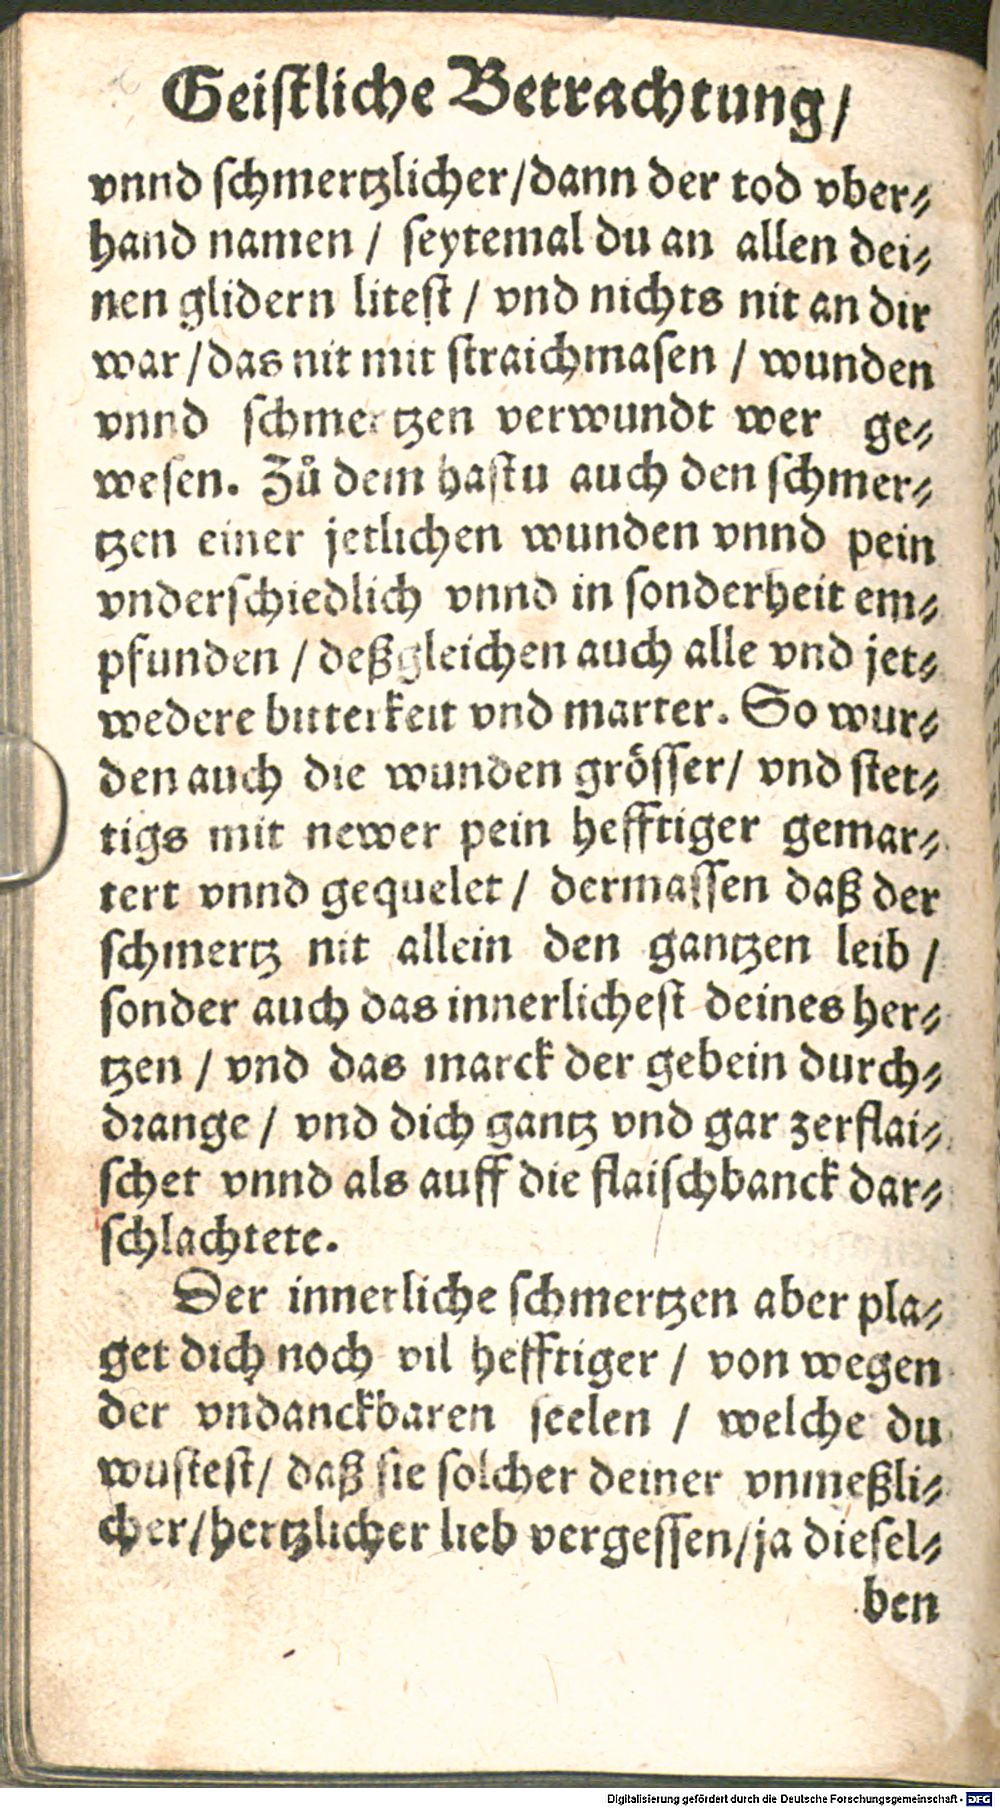 Geistliche Betrachtung/
vnnd schmertzlicher/dann der tod vber⸗
hand namen / seytemal du an allen dei⸗
nen glidern litest / vnd nichts nit an dir
war/das nit mit straichmasen / wunden
vnnd schmertzen verwundt wer ge⸗
wesen. Zů dem hastu auch den schmer⸗
tzen einer jetlichen wunden vnnd pein
vnderschiedlich vnnd in sonderheit em⸗
pfunden / deßgleichen auch alle vnd jet⸗
wedere bitterkeit vnd marter. So wur⸗
den auch die wunden grösser/ vnd stet⸗
tigs mit newer pein hefftiger gemar⸗
tert vnnd gequelet / dermassen daß der
schmertz nit allein den gantzen leib /
sonder auch das innerlichest deines her⸗
tzen / vnd das marck der gebein durch⸗
drange / vnd dich gantz vnd gar zerflai⸗
schet vnnd als auff die flaischbanck dar⸗
schlachtete.
Der innerliche schmertzen aber pla⸗
get dich noch vil hefftiger / von wegen
der vndanckbaren seelen / welche du
wustest/ daß sie solcher deiner vnmeßli⸗
cher/hertzlicher lieb vergessen/ja diesel⸗
ben
Digitalisierung gefördert durch die Deutsche Forschungsgemeinschaft - DFG